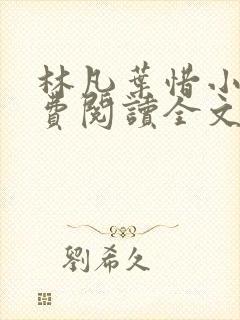 林凡葉惜小
費閱讀全文
劉希久